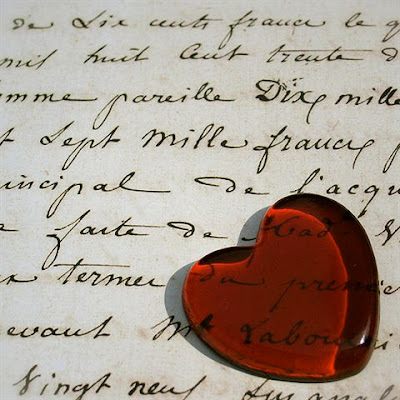 de Six cents francs le
mil huit Cent trente
somme pareille Dix mille
t Sept Mille francs p
principal de l'acqu
e faite de Mad. V
termes du premie
devant Me
Vingt neuf